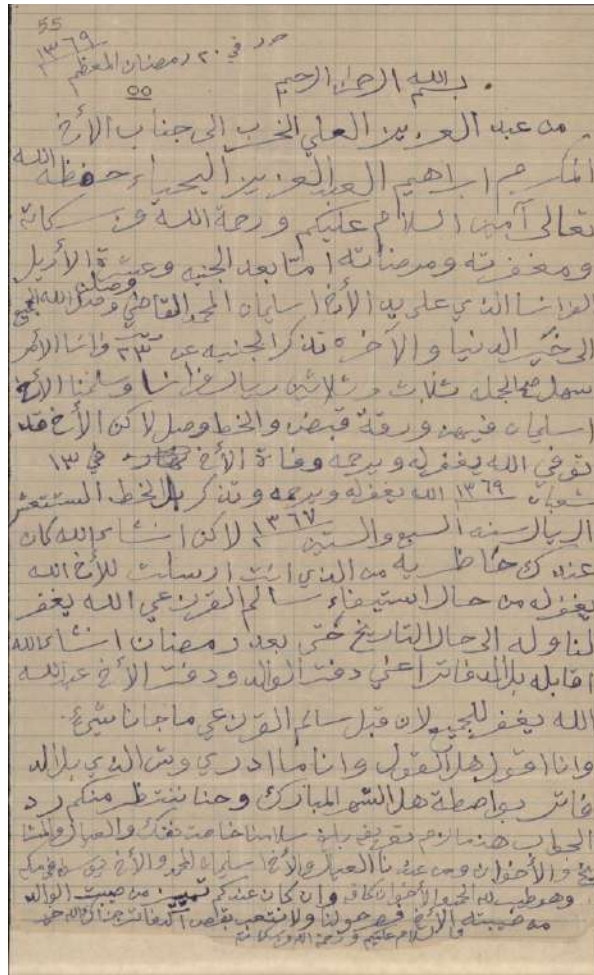 55
حرر في ٢٠ رمضان المعظم ١٣٦٩
بسم الله الرحمن الرحيم
من عبد العزيز العلي الخرب الى جناب الأخ
المكرم ابراهيم العبد العزيز اليحياء حفظه الله
تعالى آمين السلام عليكم ورحمة الله وبركاته
ومغفرته ومرضاته امتا بعد الجنيه وعشرة الأريل
الفرانسا الذي على يد الأخ اسليمان المحمد القاضي وصلن وصلك الله الجميع
الى خير الدنيا والآخره تذكر الجنيه عن ٢٣ فانشا الأمر
سهل صح الجمله ثلاث وثلاثين ريال فرانسا وسلمنا الأخ
اسليمان فيهن ورقة قبض والخط وصل لاكن الأخ قد
توفي الله يغفر له ويرحمه وفاة الأخ في ١٣
شعبان ١٣٦٩ الله يغفر له ويرحمه وتذكر بالخط الستتعشر
الريال سنه السبع والستين ١٣٦٧ لاكن انشاء الله كان
عندك خاطريه من الذي انت ارسلت للأخ الله
يغفر له من حال استيفاء سالم القرزعي الله يغفر
لنا وله الى حال التاريخ حتى بعد رمضان انشاء الله
اقابله بلالدفاتر اعني دفتر الوالد ودفتر الأخ عبدالله
الله يغفر للجميع لان قبل سالم القرزعي ما جانا شيء
وانا اقول هلالقول وانا ما ادري وش الذي بلالد
فاتر بواصطة هلالشهر المبارك وحنا ننتظر منكم رد
الجواب هذا مالزم تعريفه بلغ سلامنا خاصت نفتك والعيال والمشا
يخ والأخوان ومن عندنا العيال والأخ اسليمان المحمد والأخ
وهو طيب لله الحمد والأخوان كافه وان كان عندكم تمييز من صيبت الوالد
من صيبته الأخ فوصحولنا ولا نتعب بقلص الدفاتر جزاك الله خير
والسلام عليكم ورحمة الله وبركاته